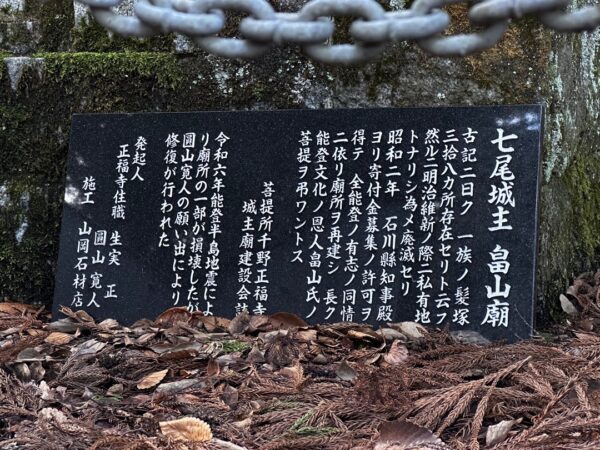 七尾城主 畠山廟
古記ニ曰ク 一族ノ髪塚
三拾八カ所存在セリト云フ
然ルニ明治維新ノ際ニ私有地
トナリシ為メ廃滅セリ
昭和二年 石川縣知事殿
ヨリ寄付金募集ノ許可ヲ
得テ 全能登ノ有志ノ同情
ニ依リ廟所ヲ再建シ 長ク
能登文化ノ恩人畠山氏ノ
菩提ヲ弔ワントス
菩提所千野正福寺
城主廟建設会
令和六年能登半島地震によ
り廟所の一部が損壊したが
圓山寛人の願い出により
修復が行われた
発起人
正福寺住職 生実 正
圓山 寛人
施工 山岡石材店